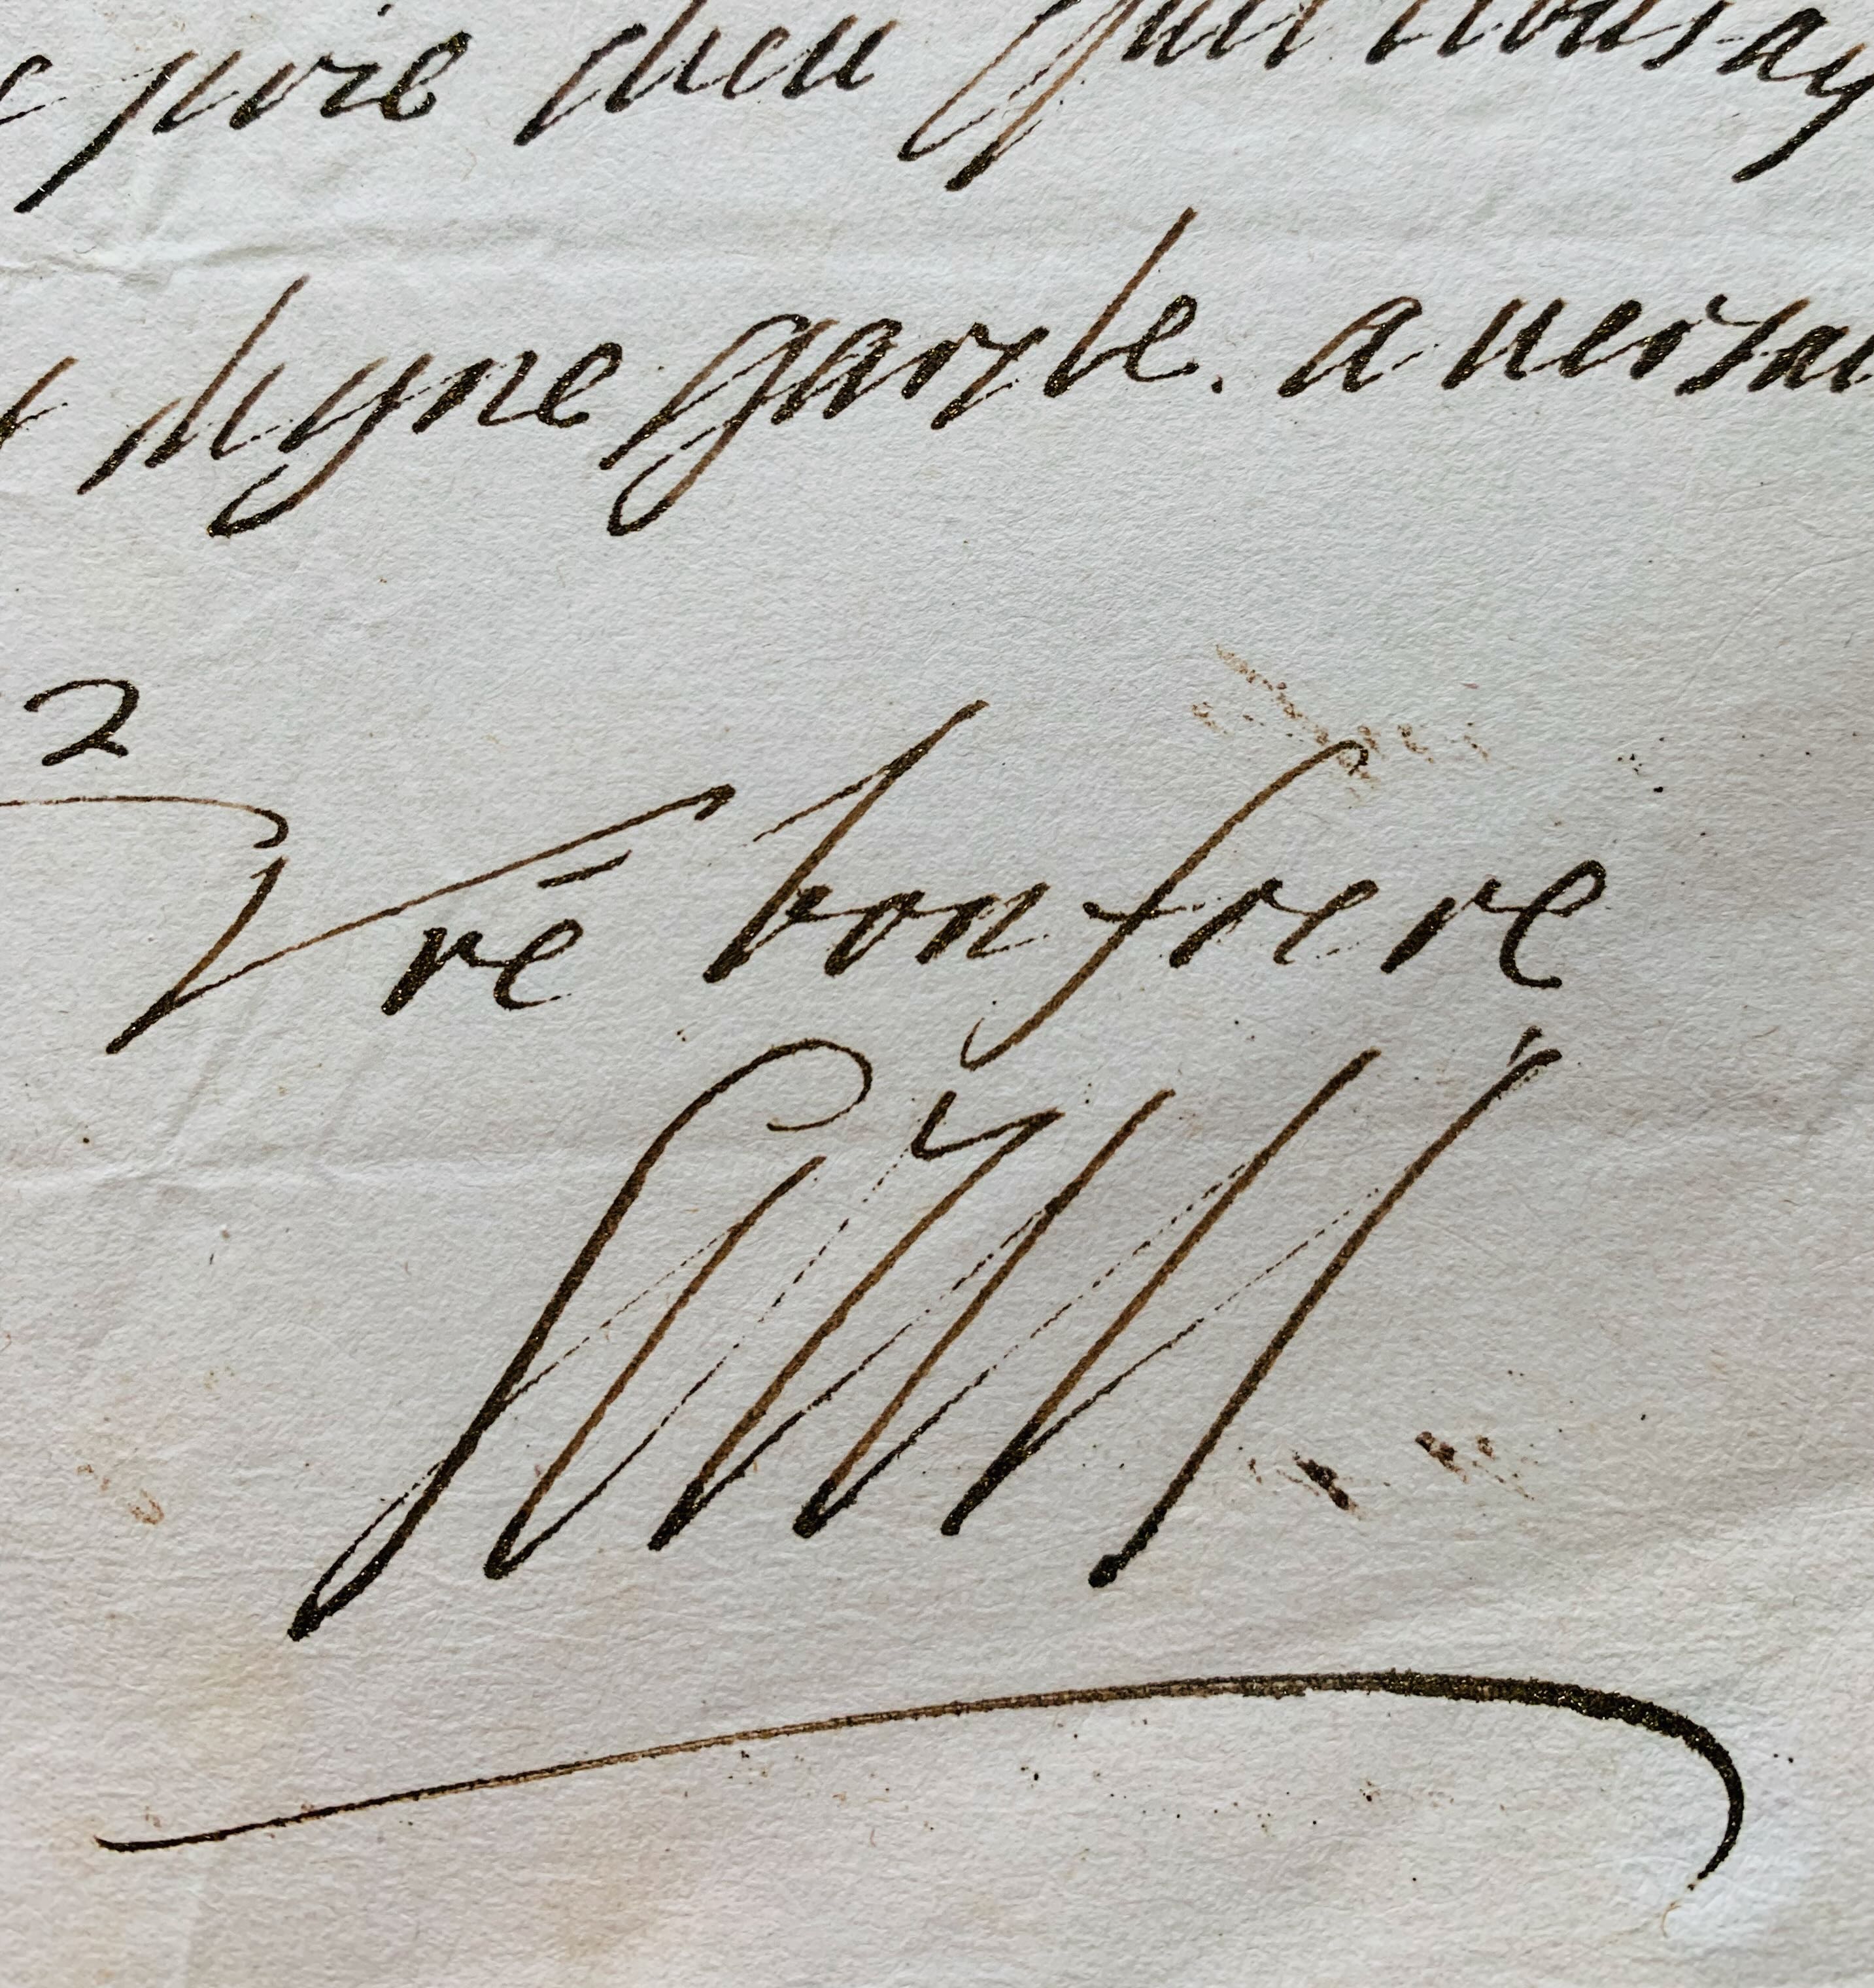 prie dieu quil vous ay
digne garde. a versai
2
Vrē bon frere
Louis